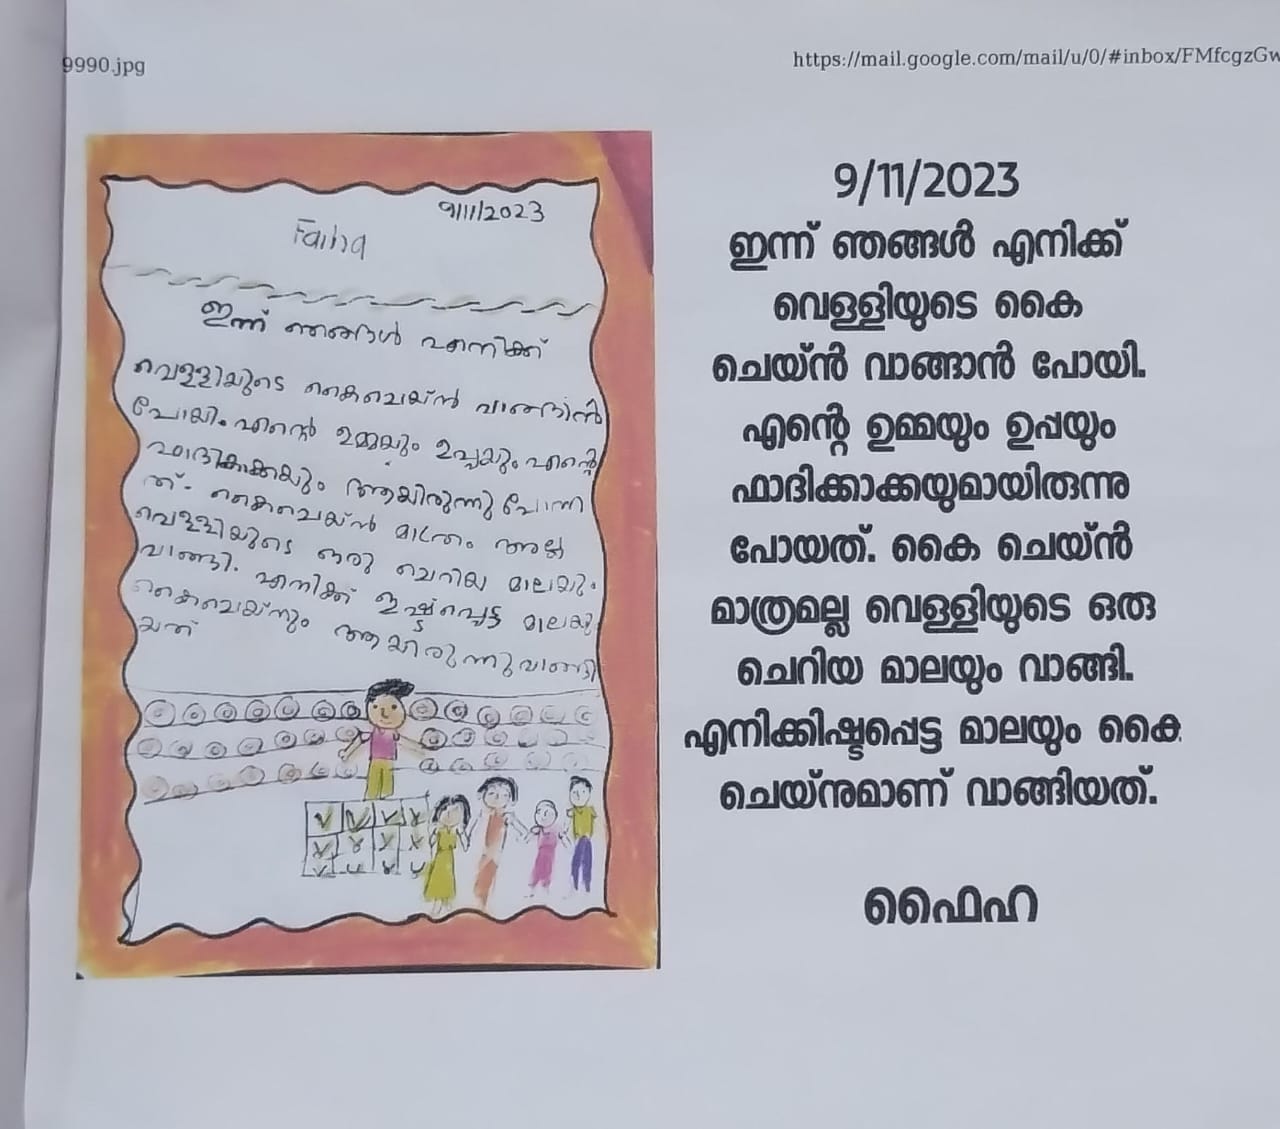 9990.jpg
https://mail.google.com/mail/u/0/#inbox/FMfcgzGw
9/11/2023
Faiha
ഇന്ന് ഞങ്ങൾ എനിക്ക്
വെള്ളിയുടെ കൈചെയ്ൻ വാങ്ങിൻ
പോയി. എന്റെ ഉമ്മയും ഉപ്പയും എന്റെ
ഫാദികാക്കയും ആയിരുന്നു പോന്ന
ത്. കൈചെയ്ൻ മാത്രം അല്ല
വെള്ളിയുടെ ഒരു ചെറിയ മാലയും
വാങ്ങി. എനിക്ക് ഇഷ്ടപ്പെട്ട മാലയു
കൈചെയ്നും ആയിരുന്നു വാങ്ങി
യത്
9/11/2023
ഇന്ന് ഞങ്ങൾ എനിക്ക്
വെള്ളിയുടെ കൈ
ചെയ്ൻ വാങ്ങാൻ പോയി.
എന്റെ ഉമ്മയും ഉപ്പയും
ഫാദിക്കാക്കയുമായിരുന്നു
പോയത്. കൈ ചെയ്ൻ
മാത്രമല്ല വെള്ളിയുടെ ഒരു
ചെറിയ മാലയും വാങ്ങി.
എനിക്കിഷ്ടപ്പെട്ട മാലയും കൈ
ചെയ്നുമാണ് വാങ്ങിയത്.
ഫൈഹ